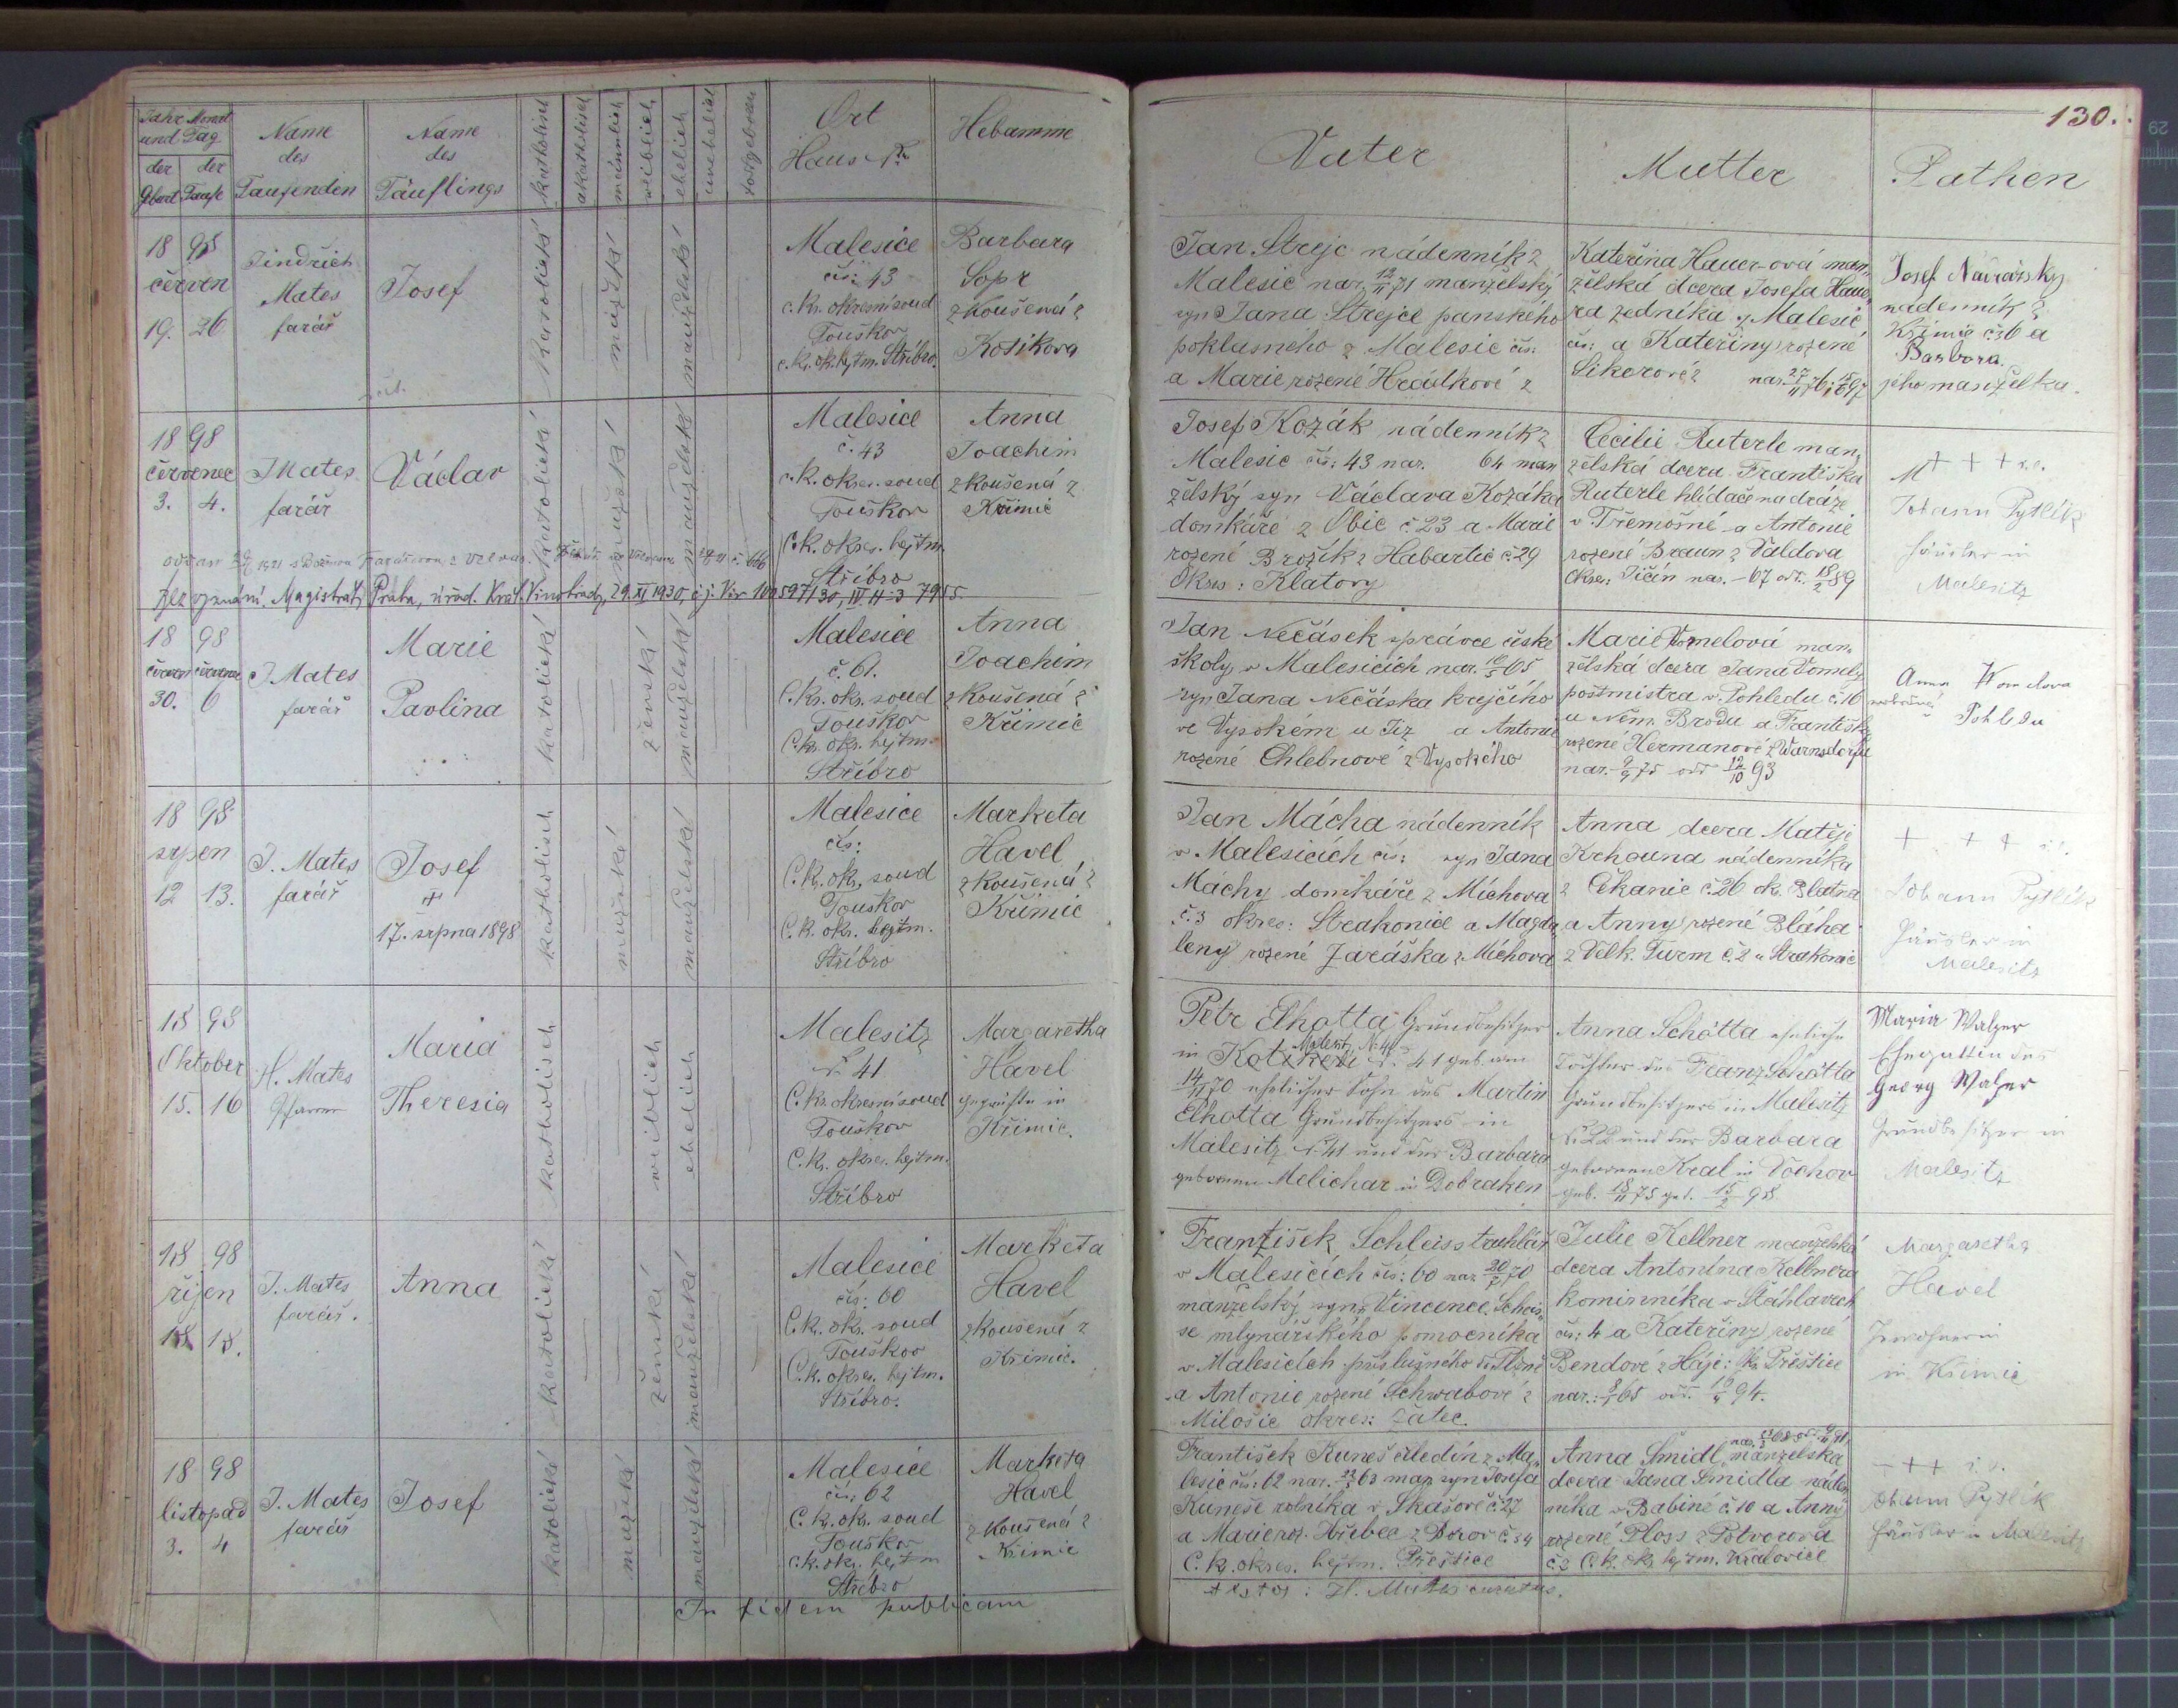 130.
Jahr Monat
und Tag
der der
Gburt Taufe
Name
des
Taufenden
Name
des
Täuflings
katholisch
akatholisch
männlich
weiblich
ehelich
unehelich
todtgeboren
Ort
Haus Nr.
Hebamme
Vater
Mutter
Pathen
18 98
červen
19. 26
Jindřich
Mates
farář
Josef
katolické
mužské
manželské
Malesice
čís: 43
c. kr. okresní soud
Touškov
c. k. ok. hejtm. Stříbro.
Barbara
Sopr
zkoušená z
Kotíkova
Jan Strejc nádenník z
Malesic nar. 12/11 71 manželský
syn Jana Strejce panského
poklasného z Malesic čís:
a Marie rozené Hrádkové z
Kateřina Hauer-ová man-
želská dcera Josefa Haue-
ra zedníka z Malesic
čís: a Kateřiny rozené
Sikorové z nar. 27/11 76
Josef
nádenník z
Křimic č 36 a
Barbora
jeho manželka.
18 98
červenec
3. 4.
J Mates
farář
Václav
katolické
mužské
manželské
Malesice
č. 43
c. k. okres. soud
Touškov
C. k. okres. hejtm.
Stříbro
Anna
Joachim
zkoušená z
Křimic
bez vyznání. Magistrát Praha, úřad. Král. Vinohrady, 29. XI 1930,
Josef Kozák nádenník z
Malesic čís: 43 nar. 64 man
želský syn Václava Kozáka
domkáře z Obic č 23 a Marie
rozené Brožík z Habartic č. 29
Okres: Klatovy
Cecilie Ruterle man-
želská dcera Františka
Ruterle hlídače na dráze
v Třemošné a Antonie
rozené Braun z Valdova
okres: Jičín nar. - 67 odd. 18/2 89
+ + +
Johann Pytlík
Häusler in
Malesitz
18 98
červen července
30. 6
J. Mates
farář
Marie
Pavlina
katolické
ženské
manželské
Malesice
č. 61.
C. kr. okr. soud
Touškov
C. kr. okr. hejtm.
Stříbro
Anna
Joachim
zkoušená z
Křimic
Jan Nečásek správce české
školy v Malesicích nar. 65
syn Jana Nečáska krejčího
ve Vysokém u Jiz a Antonie
rozené Chlebnové z Vysokého
Marie Vomelová man-
želská dcera Jana Vomely
poštmistra v Pohledu č. 16
u Něm. Brodu a Františky
rozené Hermanové z Warnsdorfu
nar. 9/9 75 odd 12/10 93
Anna
Pohledu
18 98
srpen
12 13.
J. Mates
farář
Josef
+
17. srpna 1898
katholisch
mužské
manželské
Malesice
čís:
C. kr. okr. soud
Touškov
C. k. okr. hejtm.
Stříbro
Marketa
Havel
zkoušená z
Křimic
Jan Mácha nádenník
v Malesicích čís: syn Jana
Máchy domkáře z Míchova
č. 3 okres: Strakonice a Magda-
leny rozené Jaráska z Míchova
Anna dcera Matěje
Krhouna nádenníka
z Čekanic č. 26 ok. Blatna
a Anny rozené Bláha
z Velk. Turm č. 2 u Strakonic
+ + +
Johann Pytlík
Häusler in
Malesitz
18 98
Oktober
15. 16
H. Mates
Pfarrer
Maria
Theresia
katholisch
weiblich
ehelich
Malesitz
Nr 41
C. kr. okresní soud
Touškov
C. k. okres. hejtm.
Stříbro
Margaretha
Havel
geprüfte in
Křimic.
Petr Elhotta Grundbesitzer
in Malesitz Nr. 41 geb. am
14/11 70 ehelicher Sohn des Martin
Elhotta Grundbesitzers in
Malesitz Nr 41 und der Barbara
gebornen Melichar in Dobraken
Anna Schötta eheliche
Tochter des Franz Schötta
Grundbesitzers in Malesitz
Nr 22 und der Barbara
gebornen Kral in Vochov
geb. 18/11 75 get. 15/2 98.
Maria Walzer
Ehegattin des
Georg Walzer
Grundbesitzer in
Malesitz
18 98
říjen
18.
J. Mates
farář.
Anna
katolické
ženské
manželské
Malesice
čís: 60
C. kr. okr. soud
Touškov
C. k. okres. hejtm.
Stříbro.
Marketa
Havel
zkoušená z
Křimic.
František Schleiss truhlář
v Malesicích čís: 60 nar. 20/7 70
manželský syn Vincence Schleis-
se mlynářského pomocníka
v Malesicích příslušného do Plzně
a Antonie rozené Schwabové z
Milošic okres: Žatec.
Julie Kellner manželská
dcera Antonína Kellnera
kominníka v Šťáhlavech
čís: 4 a Kateřiny rozené
Bendové z Háje: Ok. Přeštice
nar.: 65 odd. 94.
Margaretha
Havel
in Křimic
18 98
listopad
3. 4
J. Mates
farář
Josef
katolické
mužské
manželské
Malesice
čís: 62
C. k. ok. soud
Touškov
c. k. okr. hejtm
Stříbro
Marketa
Havel
zkoušená z
Křimic
František Kuneš čeledín z Ma-
lesic čís: 62 nar. 63 man. syn Josefa
Kuneše rolníka v Skašově č. 27
a Marie roz. Hřebec z č. 34
C. k. okres. hejtm. Přeštice
Anna Šmidl manželská
dcera Jana Šmidla náden-
níka v Babině č. 10 a Anny
rozené Ploss z Potvorova
č. 2 C. k. ok. hejtm. Kralovice
+ +
Johann Pytlík
Häusler in Malesitz
In fidem publicam
testor: H. Mates curatus.